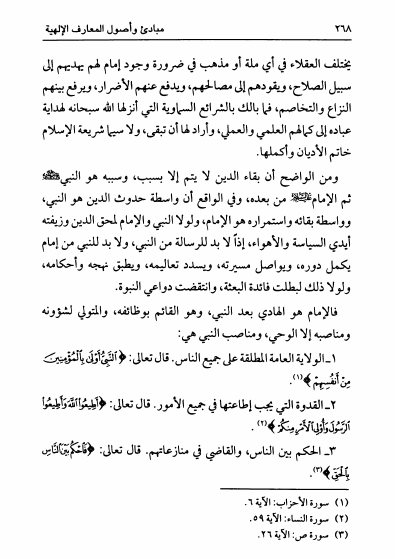 ٢٦٨ مبادئ وأصول المعارف الإلهية
يختلف العقلاء في أي ملة أو مذهب في ضرورة وجود إمام لهم يهديهم إلى
سبيل الصلاح، ويقودهم إلى مصالحهم، ويدفع عنهم الأضرار، ويرفع بينهم
النزاع والتخاصم، فما بالك بالشرائع السماوية التي أنزلها الله سبحانه لهداية
عباده إلى كمالهم العلمي والعملي، وأراد لها أن تبقى، ولا سيما شريعة الإسلام
خاتم الأديان وأكملها.
ومن الواضح أن بقاء الدين لا يتم إلا بسبب، وسببه هو النبي ﷺ
ثم الإمام من بعده، وفي الواقع أن واسطة حدوث الدين هو النبي،
وواسطة بقائه واستمراره هو الإمام، ولولا النبي والإمام لمحق الدين وزيفته
أيدي السياسة والأهواء، إذاً لا بد للرسالة من النبي، ولا بد للنبي من إمام
يكمل دوره، ويواصل مسيرته، ويسدد تعاليمه، ويطبق نهجه وأحكامه،
ولولا ذلك لبطلت فائدة البعثة، وانتقضت دواعي النبوة.
فالإمام هو الهادي بعد النبي، وهو القائم بوظائفه، والمتولي لشؤونه
ومناصبه إلا الوحي، ومناصب النبي هي:
١ـ الولاية العامة المطلقة على جميع الناس. قال تعالى: ﴿النَّبِيُّ أَوْلَى بِالْمُؤْمِنِينَ
مِنْ أَنفُسِهِمْ﴾(١).
٢ـ القدوة التي يجب إطاعتها في جميع الأمور. قال تعالى: ﴿أَطِيعُوا اللَّهَ وَأَطِيعُوا
الرَّسُولَ وَأُولِي الْأَمْرِ مِنكُمْ﴾(٢).
٣ـ الحكم بين الناس، والقاضي في منازعاتهم. قال تعالى: ﴿فَاحْكُم بَيْنَ النَّاسِ
بِالْحَقِّ﴾(٣).
(١) سورة الأحزاب: الآية ٦.
(٢) سورة النساء: الآية ٥٩.
(٣) سورة ص: الآية ٢٦.